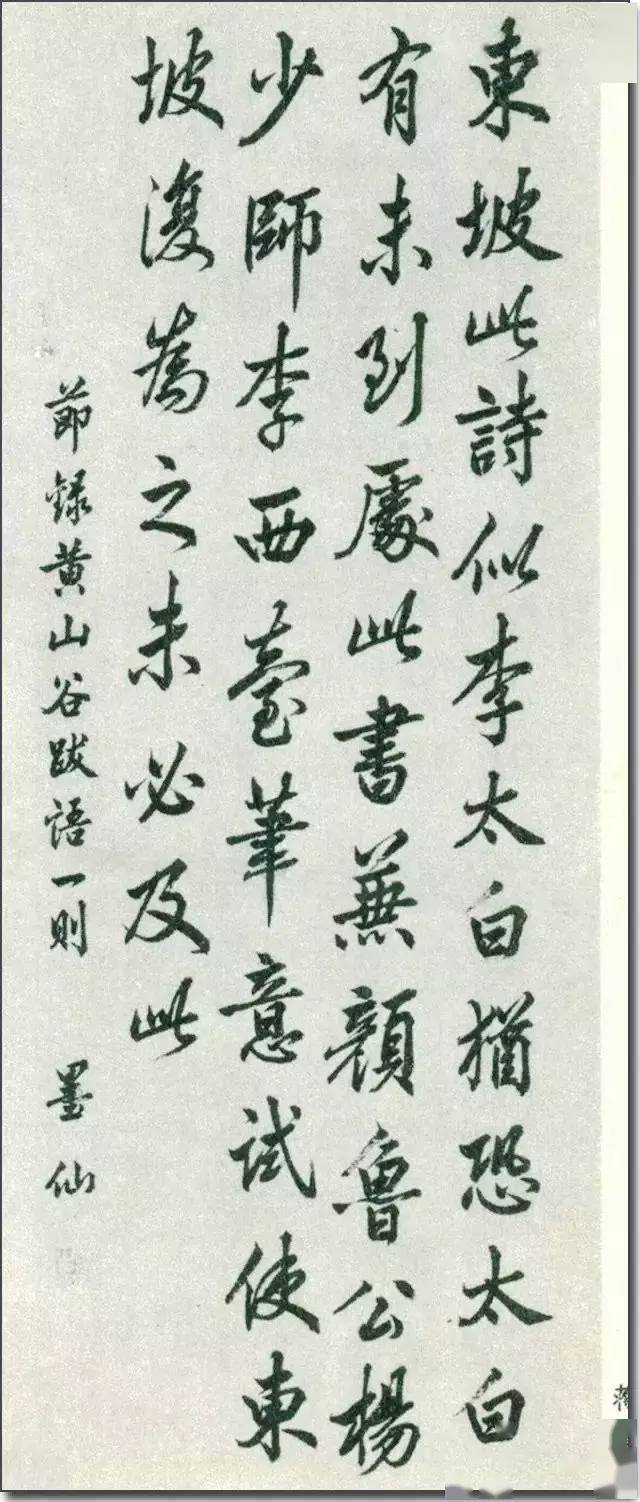 東坡此詩似李太白猶恐太白
有未到處此書兼顏魯公楊
少師李西臺筆意試使東
坡復為之未必及此
節錄黃山谷跋語一則 墨仙